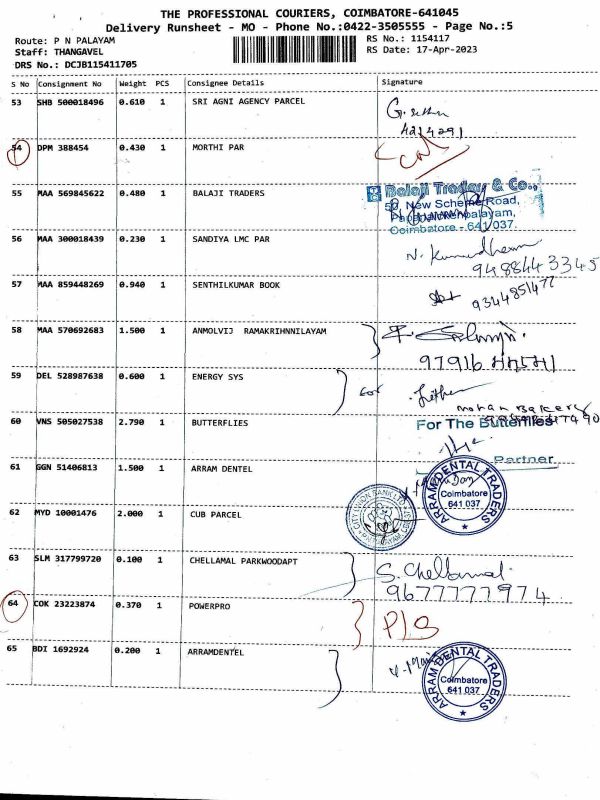 THE PROFESSIONAL COURIERS, COIMBATORE-641045
Delivery Runsheet - MO - Phone No.:0422-3505555 - Page No.:5
Route: P N PALAYAM RS No.: 1154117
Staff: THANGAVEL RS Date: 17-Apr-2023
DRS No.: DCJB115411705
S No Consignment No Weight PCS Consignee Details Signature
53 SHB 500018496 0.610 1 SRI AGNI AGENCY PARCEL
54 DPM 388454 0.430 1 MORTHI PAR
55 MAA 569845622 0.480 1 BALAJI TRADERS
Balaji Traders & Co.,
New Scheme Road,
Coimbatore - 641 037.
56 MAA 300018439 0.230 1 SANDIYA LMC PAR
9488443345
57 MAA 859448269 0.940 1 SENTHILKUMAR BOOK
9344851477
58 MAA 570692683 1.500 1 ANMOLVIJ RAMAKRIHNNILAYAM
59 DEL 528987638 0.600 1 ENERGY SYS
Mohan Bakery
60 VNS 505027538 2.790 1 BUTTERFLIES
For The Butterflies
Partner
61 GGN 51406813 1.500 1 ARRAM DENTEL
ARRAM DENTAL TRADERS
Coimbatore
641 037
62 MYD 10001476 2.000 1 CUB PARCEL
63 SLM 317799720 0.100 1 CHELLAMAL PARKWOODAPT
S. Chellamal
9677777974
64 COK 23223874 0.370 1 POWERPRO
65 BDI 1692924 0.200 1 ARRAMDENTEL
ARRAM DENTAL TRADERS
Coimbatore
641 037